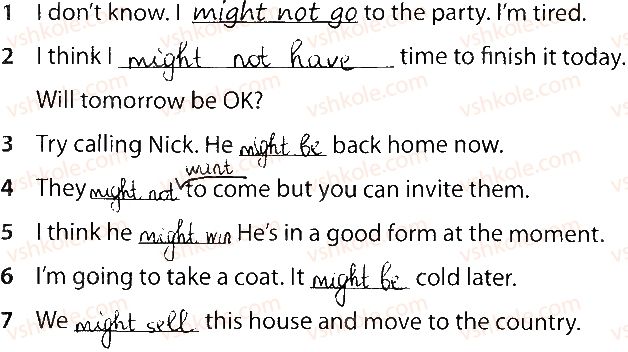 1 I don't know. I might not go to the party. I'm tired.
2 I think I might not have time to finish it today.
Will tomorrow be OK?
3 Try calling Nick. He might be back home now.
wint
4 They might not to come but you can invite them.
5 I think he might win He's in a good form at the moment.
6 I'm going to take a coat. It might be cold later.
7 We might sell this house and move to the country.